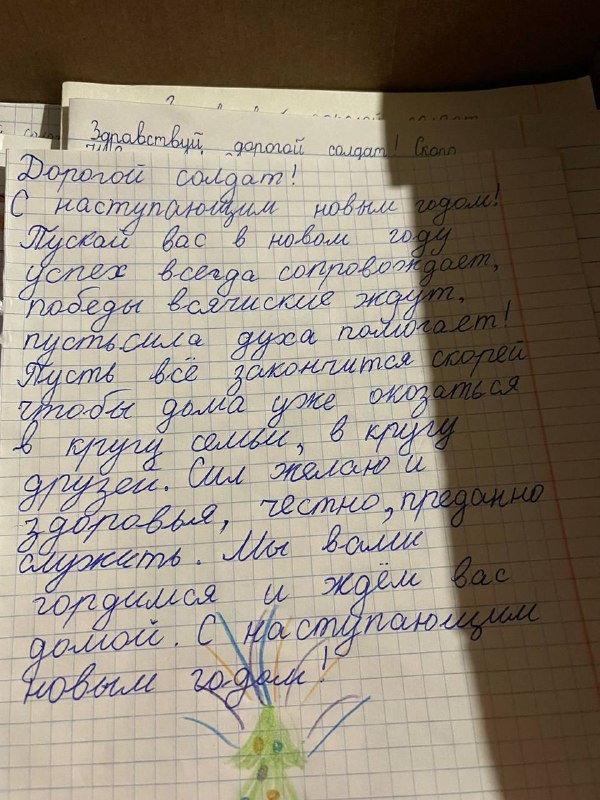 Здравствуй, дорогой солдат! Скоро
Дорогой солдат!
С наступающим новым годом!
Пускай вас в новом году
успех всегда сопровождает,
победы всячиские ждут,
пусть сила духа помогает!
Пусть всё закончится скорей
чтобы дома уже окозаться
в кругу семьи, в кругу
друзей. Сил желаю и
здоровья, честно, преданно
служить. Мы вами
гордимся и ждём вас
домой. С наступающим
новым годом!